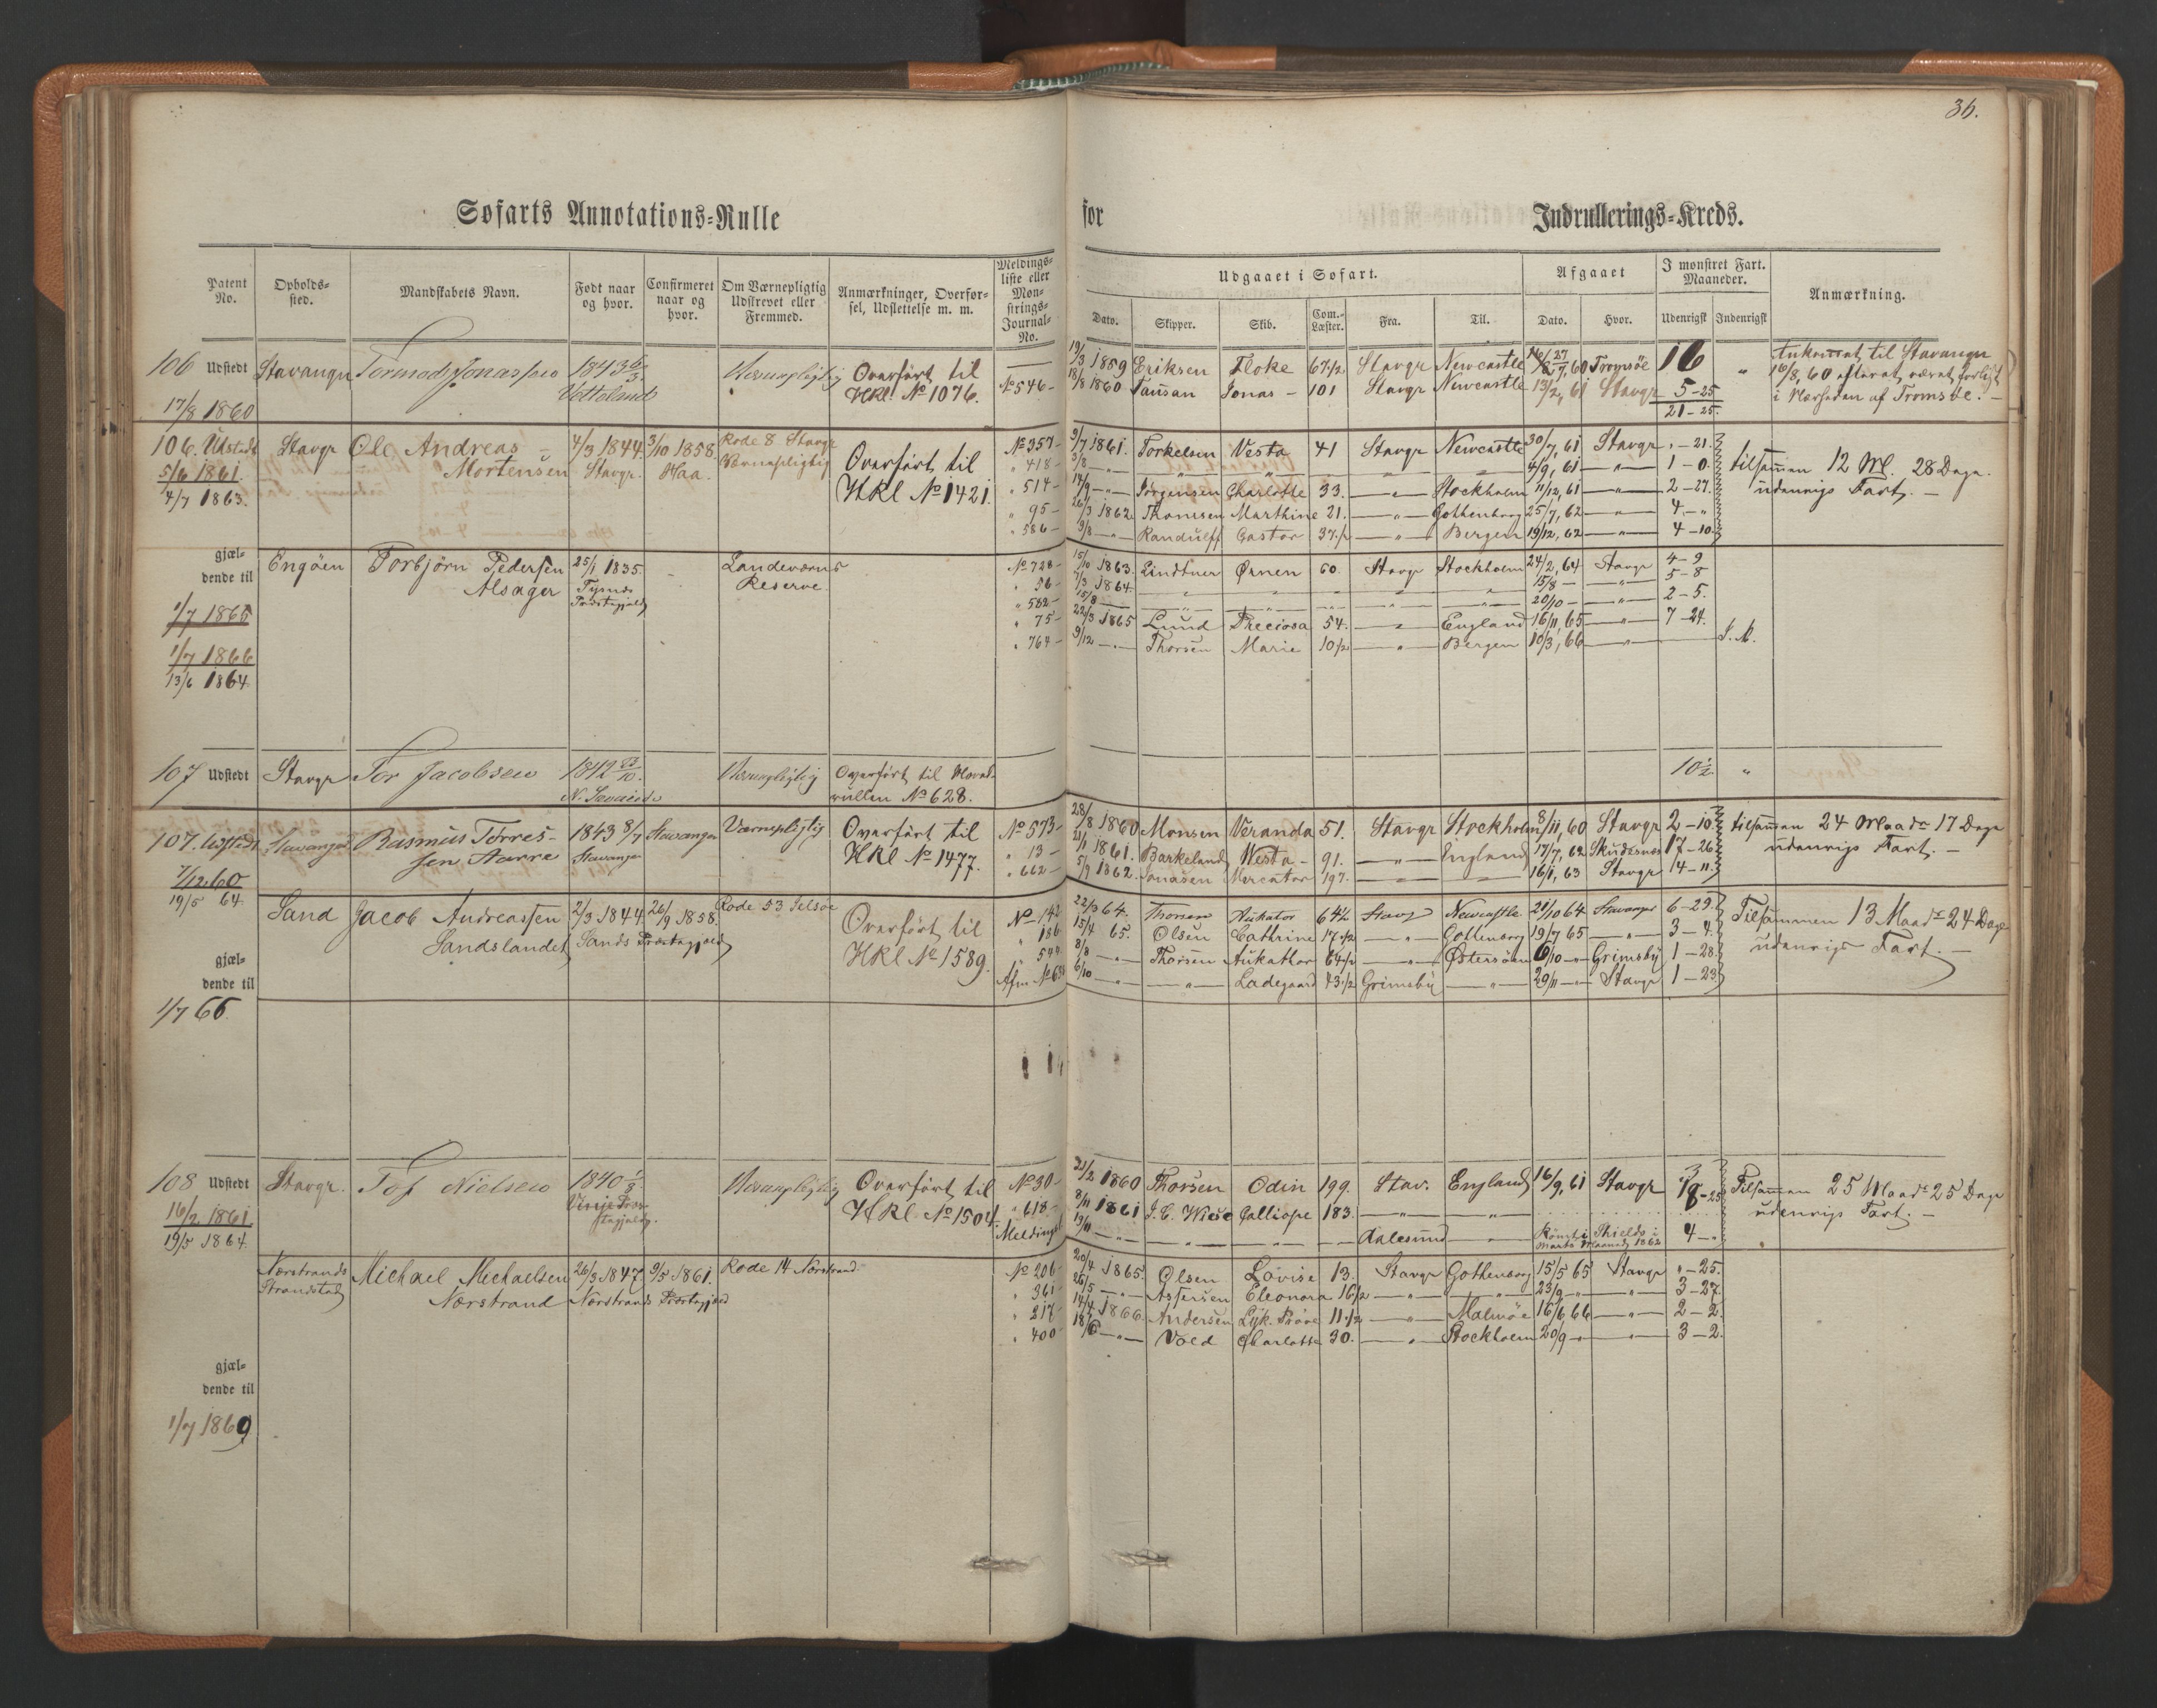 36.
Søfarts Annotations=Rulle for Indrullerings=Kreds.
Patent No.
Opholds=sted.
Mandskabets Navn.
Født naar og hvor.
Confirmeret naar og hvor.
Om Værnepligtig Udskrevet eller Fremmed.
Anmærkninger, Overførsel, Udslettelse m. m.
Meldings=liste eller Mønstrings=Journal=No.
Udgaaet i Søfart.
Dato. Skipper. Skib. Com.=Læster. Fra. Til.
Afgaaet
Dato. Hvor.
I mønstret Fart. Maaneder.
Udenrigsk Indenrigsk
Anmærkning.
106 Udstedt Stavanger Tormod Jonassen 1843 6/3 Værnepligtig Overført til
HKl No 1076.
17/8 1860
1859 Eriksen Floke 67 1/2 Stavgr Newcastle 60 Tromsöe 16 "
No 546 18/8 1860 Jonas 101 Stavgr Newcastle 13/2, 61 Stavgr 5-25
21-25.
til Stavanger
16/8, 60 efter at været forligt
i Nærheden af Tromsöe.
106. Udstedt Stavgr Ole Andreas Mortensen 4/3 1844 Stavgr. 3/10 1858 Haa. Rode 8 Stavgr Værnepligtig Overført til
HKl No 1421.
5/6 1861.
4/7 1863.
No 357 9/7 1861. Torkelsen Vesta 41 Stavgr Newcastle 30/7, 61 Stavgr " - 21.
" 418 4/9, 61 —"— 1 - 0.
" 514 Jørgensen Charlotte 33. —"— Stockholm 11/12, 61 —"— 2 - 27.
" 95 26/3 1862 Thomsen Marthine 21. —"— Gothenborg 25/7, 62 —"— 4 - "
" 586 9/8 —"— Randulff Castor 37 1/2 —"— Bergen 19/12, 62 —"— 4 - 10
tilsammen 12 M. 28 Dage.
udenrigs Fart. —
gjæl=
dende til
1/7 1865
1/7 1866
13/6 1864
Engöen Torbjörn Pedersen Alsager 25/1 1835. Præstegjeld Landeværns Reserve.
No 728 15/10 1863. Lindtner Ørnen 60. Stavgr Stockholm 24/2, 64 Stavgr 4 - 9
" 56 7/3 1864. 15/8 — —"— 5 - 8
" 582 15/8 20/10 — —"— 2 - 5.
" 75 22/3 1865 Lund Preciosa 54. England 16/11, 65 —"— 7 - 24.
" 764 9/12 —"— Thorsen Marie 10 1/2 —"— Bergen 10/3, 66 —"—
107 Udstedt Stavgr Tor Jacobsen 1842 23/10. Værnepligtig Overført til Hoved-
rullen No 628.
10 1/2. "
107. Udstedt Stavanger Rasmus Tørres-
sen Aarre 1843 8/7 Stavanger Stavanger Værnepligtig Overført til
HKl No 1477.
7/12 60
19/5 64.
No 573 28/8 1860 Monsen Veranda 51. Stavgr Stockholm 8/11, 60 Stavgr 2 - 10
" 13 21/1 1861. Barkeland Vesta 91. —"— England 17/7, 62 Skudesnes 17 - 26
" 662 5/9 1862. Jonasen Mercator 197. 16/1, 63 Stavgr 14 - 11.
tilsammen 24 Maadr 17 Dage
udenrigs Fart. —
Sand Jacob Andreassen
Sandslandet 2/3 1844 26/9 1858. Sands Præstegjeld Rode 53 Jelsöe Overført til
HKl No 1589.
gjæl=
dende til
1/7 66.
No 142 22/3 64. Thorsen Aukator 64 1/2 Stavgr Newcastle 21/10 64 Stavanger 6 - 29
" 186 15/4 65. Olsen Cathrine 17 1/2 —"— Gottenborg 19/7 65 —"— 3 - 4.
8/8 —"— Thorsen Aukathor 64 1/2 —"— Østersöen 6/10 —"— Grimsby 1 - 28
6/10 —"— —"— Ladegaard 73 1/2 Grimsby —"— 29/11 — Stavgr 1 - 23
Tilsammen 13 Maadr 24 Dage
udenrigs Fart. —
108 Udstedt Stavgr. Tof Nielsen 1840 Værnepligtig Overført til
HKl No 1504.
16/2 1861.
19/5 1864.
No 30 21/2 1860 Thorsen Odin 199. Stav. England 16/9, 61 Stavgr 18 - 25
" 618 8/11 1861 J. C. Wiese Calliope 183. —"— —"—
Melding 19/11 —"— Aalesund —"— Shields i
Marts Maaned 1862 4 - "
Tilsammen 25 Maadr 25 Dage
udenrigs Fart. —
Nærstrands
Strandstad Michael Michaelsen
Nærstrand 26/3 1847 9/5 1861. Nærstrands Præstegjeld Rode 14 Nærstrand
gjæl=
dende til
1/7 1869
No 206 20/4 1865. Olsen Lovise 13. Stavgr Gothenborg 15/5 65 Stavgr " - 25.
" 361 26/5 —"— Assersen Eleonora 16 1/2 —"— —"— 23/9 —"— —"— 3 - 27.
" 217 14/4 1866. Andersen Lyk. Pröve 11 1/2 —"— Malmöe 16/6 66 —"— 2 - 2.
" 400 18/6 —"— Vold Charlotte 30. —"— Stockholm 20/9 —"— —"— 3 - 2.